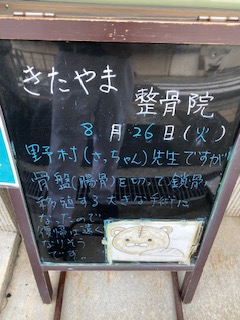 きたやま
整骨院
8月26日(火)
野村(さっちゃん)先生ですが
骨盤(腸骨)を切って鎖骨
移植する大きな手術に
なったので
復帰は遠く
なりそう
です。